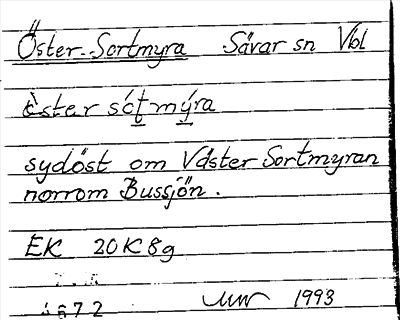 Öster-Sortmyra Sävar sn Vbl
èster sótmýra
sydöst om Väster Sortmyran
norrom Bussjön.
EK 20K8g
1993
4672